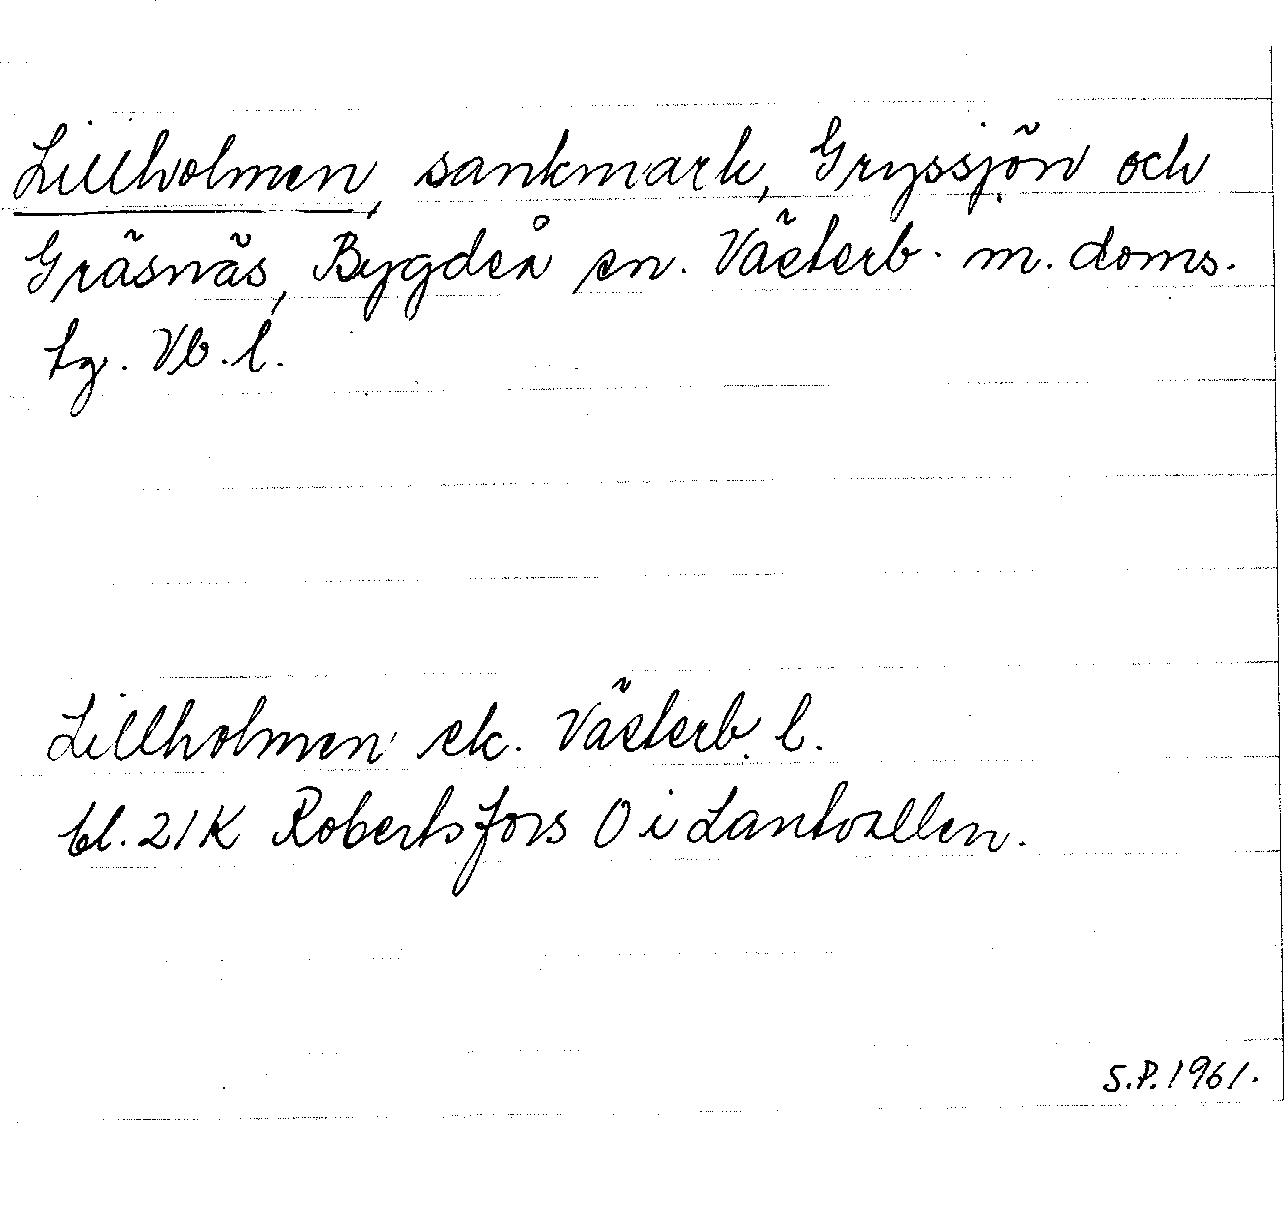 Lillholmen, sankmark, Gryssjön och
Gräsnäs, Bygdeå sn. Västerb. m. doms.
tg. Vb. l.
Lillholmen ek. Västerb. l.
bl. 21K Robertsfors O i Lantvallen.
S.P. 1961.